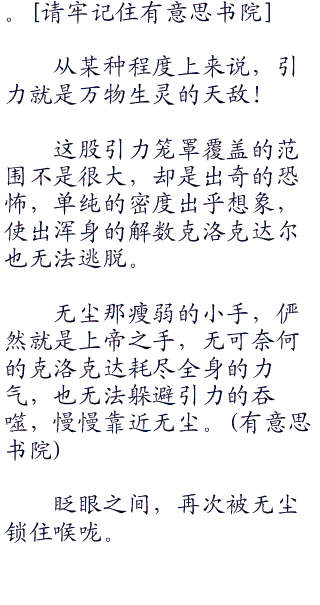 。[请牢记住有意思书院]
从某种程度上来说，引
力就是万物生灵的天敌！
这股引力笼罩覆盖的范
围不是很大，却是出奇的恐
怖，单纯的密度出乎想象，
使出浑身的解数克洛克达尔
也无法逃脱。
无尘那瘦弱的小手，俨
然就是上帝之手，无可奈何
的克洛克达耗尽全身的力
气，也无法躲避引力的吞
噬，慢慢靠近无尘。(有意思
书院)
眨眼之间，再次被无尘
锁住喉咙。